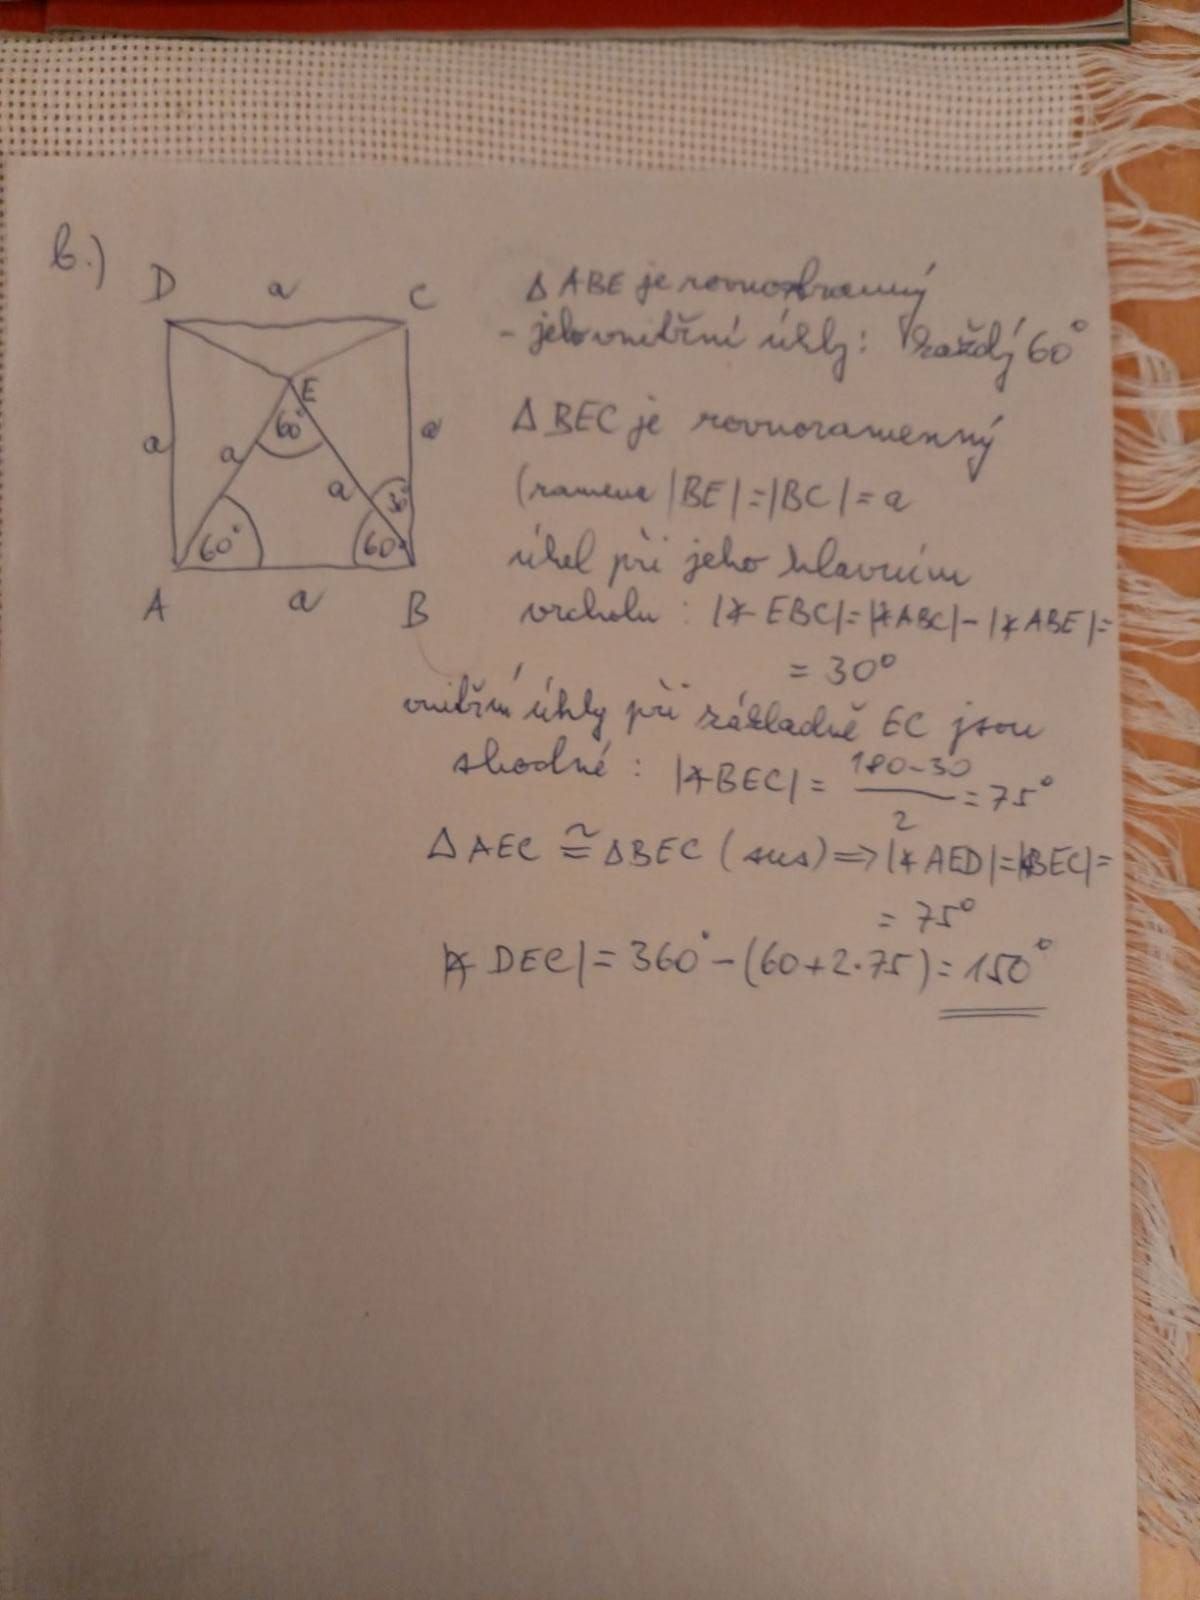 b.)
D a C
E
60°
a a a a
30°
60° 60°
A a B
Δ ABE je rovnostranný
- jeho vnitřní úhly: každý 60°
Δ BEC je rovnoramenný
(ramena |BE|=|BC|=a
úhel při jeho hlavním
vrcholu: |∡ EBC|=|∡ABC|-|∡ABE|=
= 30°
vnitřní úhly při základně EC jsou
shodné: |∡BEC| = (180-30)/2 = 75°
Δ AEC ≅ ΔBEC (sus) => |∡AED|=|∡BEC|=
= 75°
|∡ DEC| = 360° - (60+2·75) = 150°